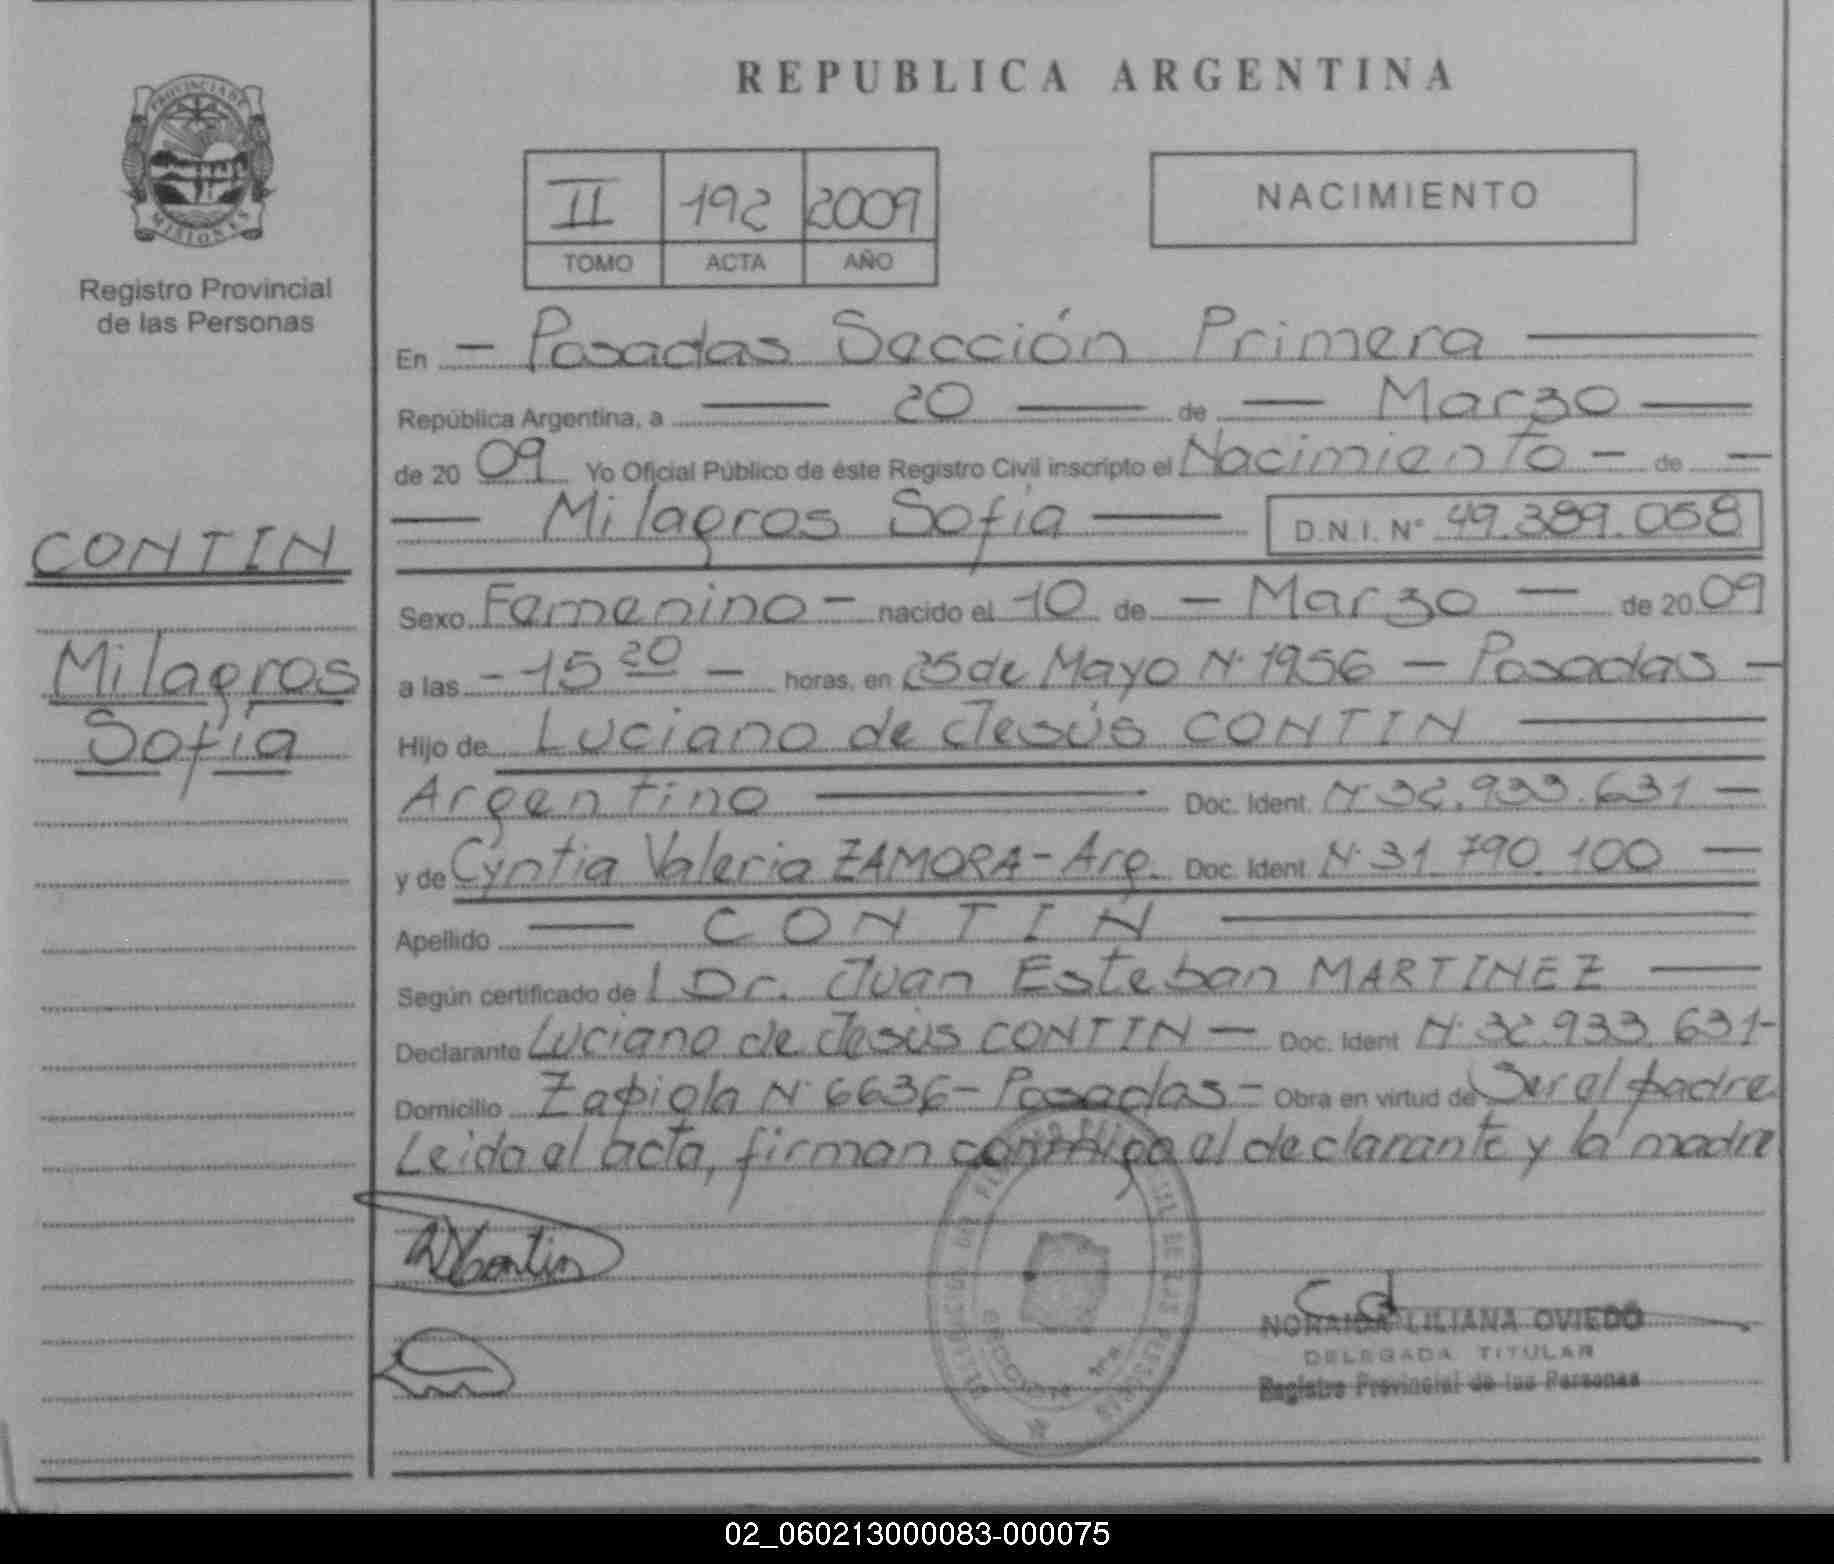 PROVINCIA DE
MISIONES
Registro Provincial
de las Personas
CONTIN
Milagros
Sofía
REPUBLICA ARGENTINA
II 192 2009
TOMO ACTA AÑO
NACIMIENTO
En — Posadas Sección Primera —
República Argentina, a — 20 — de — Marzo —
de 20 09 Yo Oficial Público de éste Registro Civil inscripto el Nacimiento — de —
— Milagros Sofía — D.N.I. Nº 49.389.058
Sexo Femenino — nacido el 10 de — Marzo — de 20 09
a las — 15 20 — horas, en 25 de Mayo Nº 1956 — Posadas —
Hijo de Luciano de Jesús CONTIN —
Argentino — Doc. Ident. Nº 32.933.631 —
y de Cyntia Valeria ZAMORA - Arg. Doc. Ident. Nº 31.790.100 —
Apellido — CONTIN —
Según certificado de l Dr. Juan Esteban MARTINEZ —
Declarante Luciano de Jesús CONTIN — Doc. Ident Nº 32.933.631-
Domicilio Zapiola Nº 6636 - Posadas - Obra en virtud de Ser el padre
Leida el acta, firman conmigo el declarante y la madre
Contin
NORAIDA LILIANA OVIEDO
DELEGADA TITULAR
Registro Provincial de las Personas
02_060213000083-000075